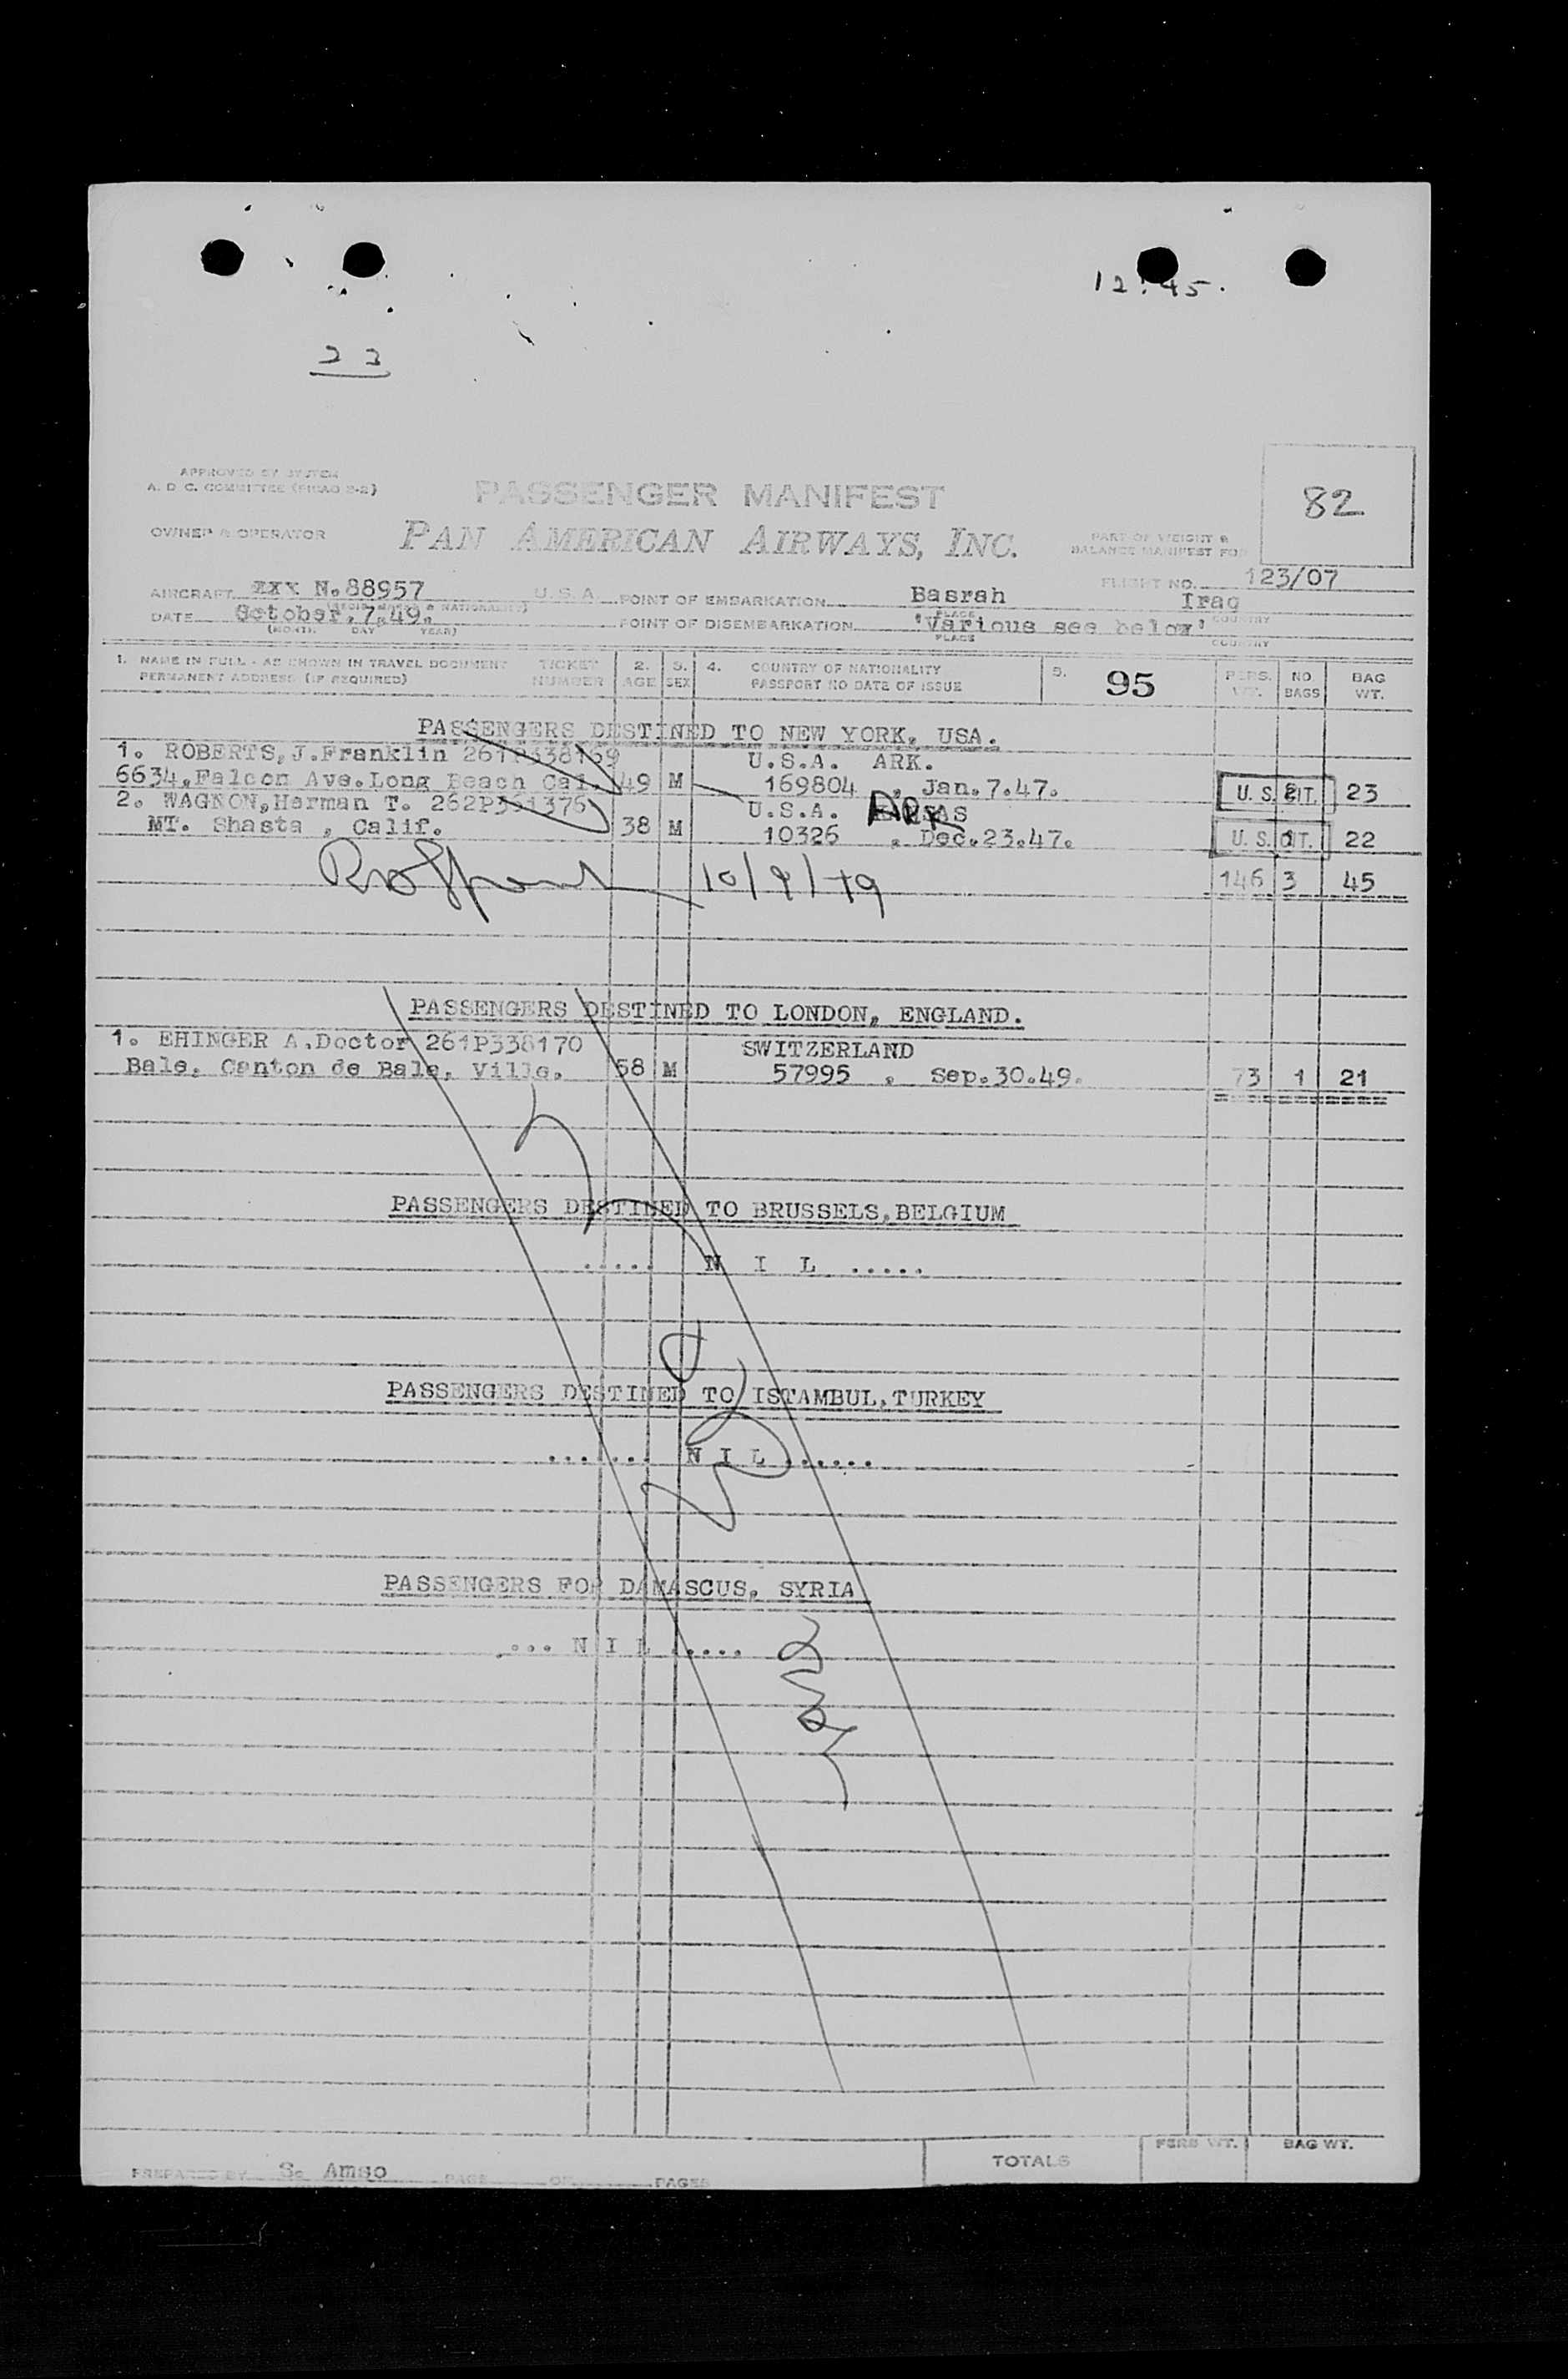 12:45.
23
APPROVED BY SYSTEM
A. D. C. COMMITTEE
PASSENGER MANIFEST
82
OWNER & OPERATOR
PAN AMERICAN AIRWAYS, INC.
PART OF WEIGHT &
BALANCE MANIFEST FOR
FLIGHT NO. 123/07
AIRCRAFT XXX N.88957 U.S.A. POINT OF EMBARKATION Basrah Iraq
DATE October.7.49. POINT OF DISEMBARKATION 'Various see below'
(MONTH DAY YEAR) PLACE COUNTRY
1. NAME IN FULL - AS SHOWN IN TRAVEL DOCUMENT TICKET 2. 3. 4. COUNTRY OF NATIONALITY 5. 95 PERS. NO BAG
PERMANENT ADDRESS (IF REQUIRED) NUMBER AGE SEX PASSPORT NO DATE OF ISSUE WT. BAGS WT.
PASSENGERS DESTINED TO NEW YORK, USA.
1. ROBERTS,J.Franklin 261P338169 U.S.A. ARK.
6634,Falcon Ave.Long Beach Cal. 49 M 169804 . Jan.7.47. U. S. CIT. 23
2. WAGNON,Herman T. U.S.A. ARK
MT. Shasta , Calif. 38 M 10326 . Dec.23.47. U. S. CIT. 22
10/9/49 146 3 45
PASSENGERS DESTINED TO LONDON, ENGLAND.
1. EHINGER A.Doctor 261P338170 SWITZERLAND
Bale, Canton de Bale, Ville. 58 M 57995 . Sep.30.49. 73 1 21
PASSENGERS DESTINED TO BRUSSELS,BELGIUM
..... N I L .....
PASSENGERS DESTINED TO ISTAMBUL,TURKEY
....... N I L ......
PASSENGERS FOR DAMASCUS, SYRIA
.... N I L .....
PREPARED BY S. Amso PAGE OF PAGES TOTALS PERS WT. BAG WT.